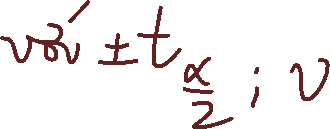 với ± t_{\frac{\alpha}{2}; ν}